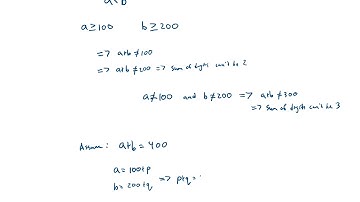 a<b
a≥100 b≥200
=> a+b≠100
=> a+b≠200 => Sum of digits can't be 2
a≠100 and b≠200 => a+b≠300
=> Sum of digits can't be 3
Assume: a+b=400
a=100+p
b=200+q => p+q=